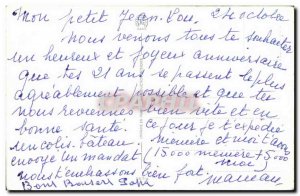 Mon petit Jean-Lou, 24 octobre
nous venons tous te souhaiter
un heureux et joyeux anniversaire
que tes 21 ans se passent le plus
agréablement possible et que tu
nous reviennes bien vite et en
bonne santé. ce jour je t'expédie
un colis bateau. mémère et moi t'avons
envoyé un mandat (15000 mémère + 5000 moi
nous t'embrassons bien fort. maman,
Bons Baisers Papa